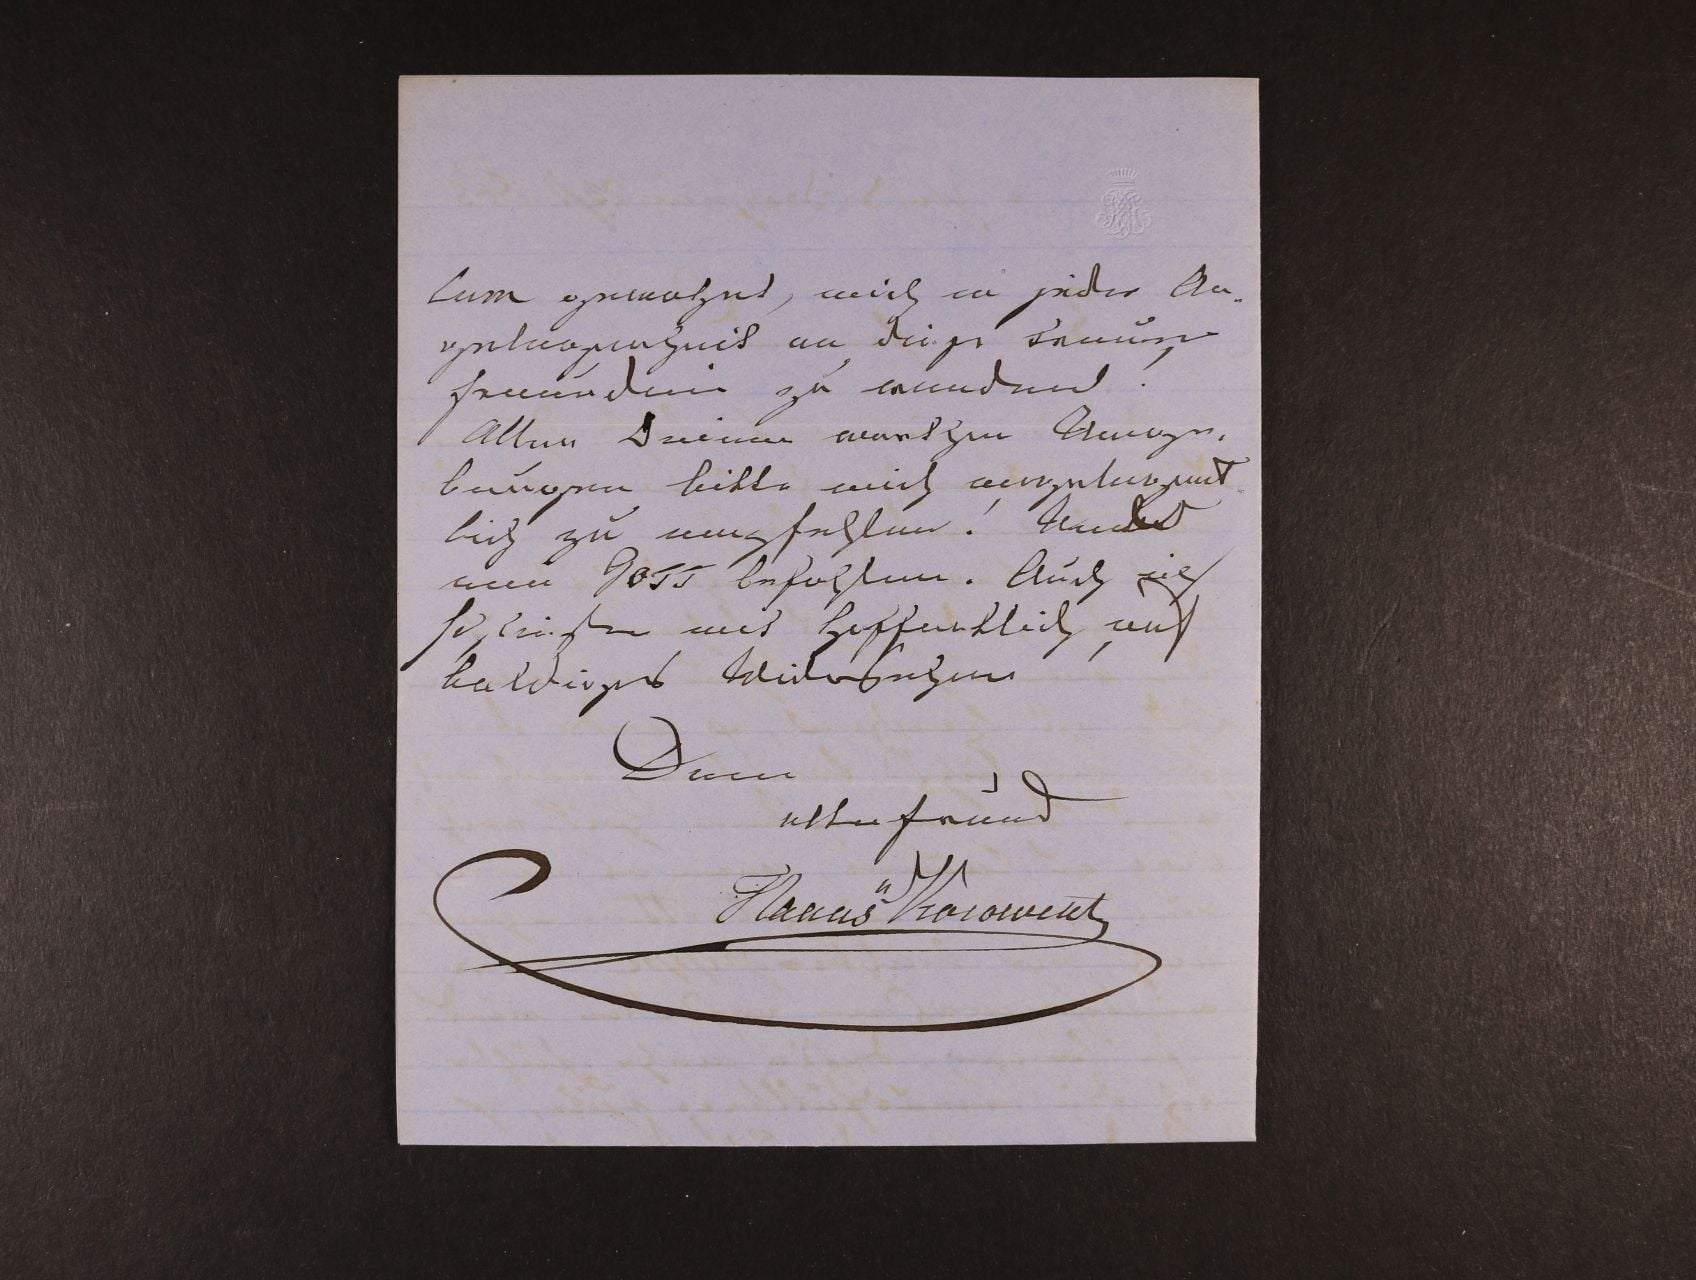 bin gewohnt, mich in jeder An-
gelegenheit an diese treue
Freundin zu wenden!
Allen Deinen werthen Umge-
bungen bitte mich angelegent
lich zu empfehlen! Und
nun GOTT befohlen. Auch ich
schließe mit hoffentlich auf
baldiges Wiedersehen
Dein
alter Freund
Hanns